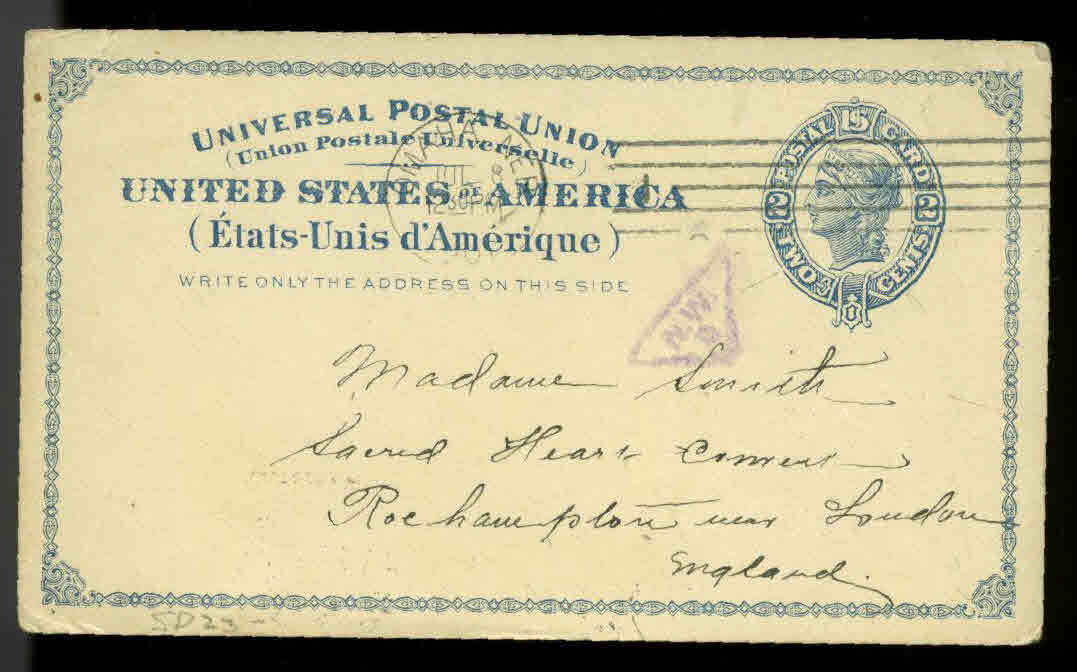 UNIVERSAL POSTAL UNION
(Union Postale Universelle)
UNITED STATES OF AMERICA
(États-Unis d'Amérique)
WRITE ONLY THE ADDRESS ON THIS SIDE
OMAHA, NEB.
JUL
12-30PM
POSTAL CARD
2 2
TWO CENTS
N.W.
Madame Smith
Sacred Heart Convent
Roehampton near London
England.